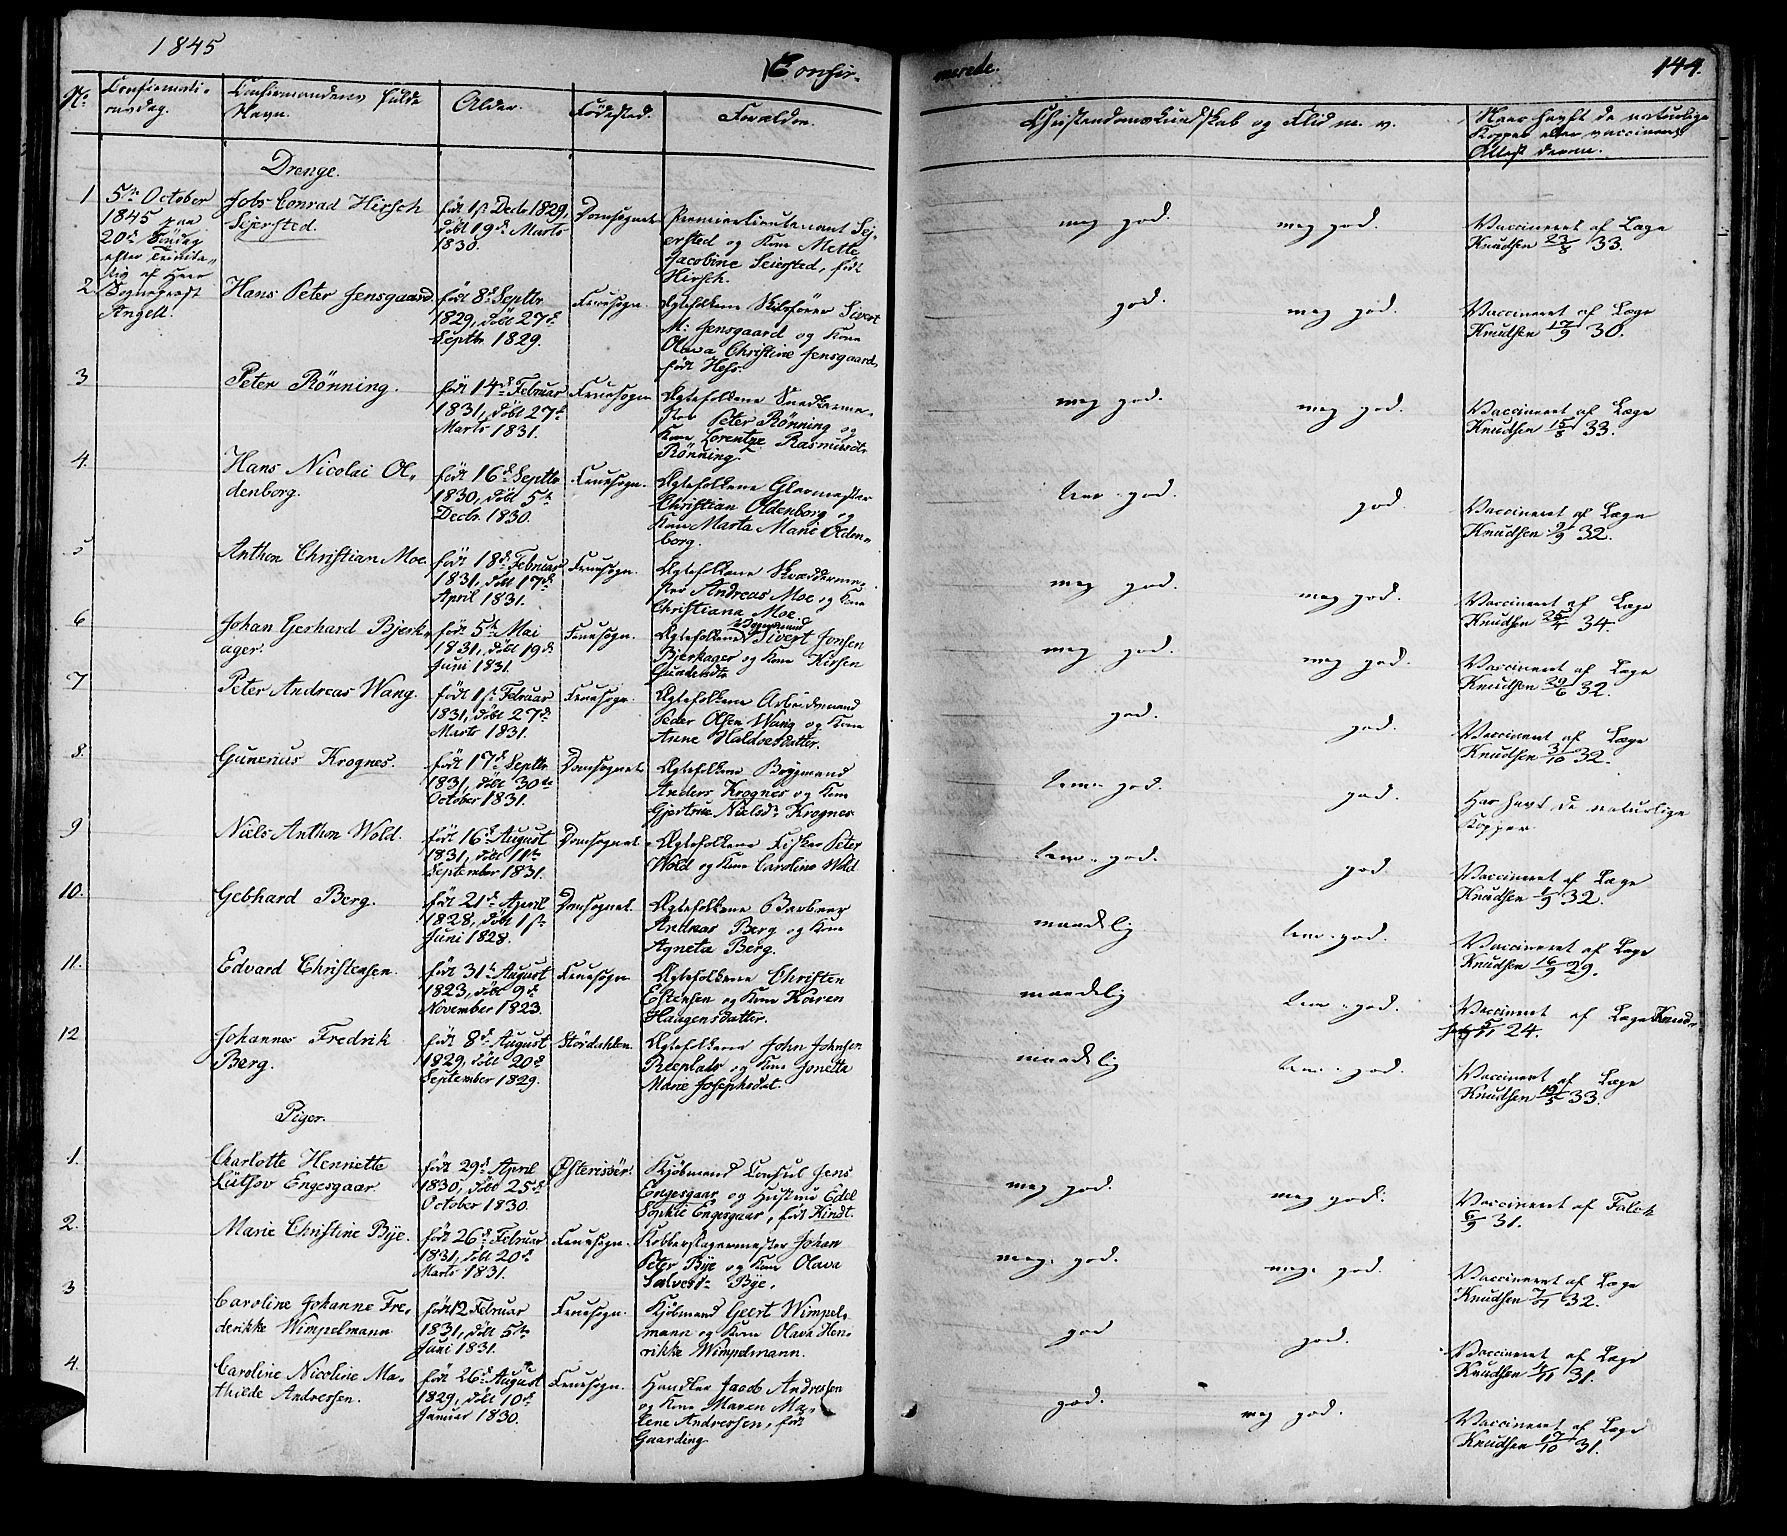 1845
Confir-
merede.
144.
No
Confirmati-
onsdag.
Confirmandens fulde
Navn.
Alder.
Fødested.
Forældre.
Christendomskundskab og Flid m. v.
Naar havft de naturlige
Kopper eller vaccineret
Attest derom.
Drenge.
1
5te October
1845 paa
20de Søndag
efter Trinita-
tis af Herr
Sognepræst
Angell.
Jobs Conrad Hirsch
Sejersted.
født 1ste Decbr 1829,
døbt 19de Marts
1830.
Domsognet
Premierlieutenant Sej-
ersted og Kone Mette
Jacobine Seiersted, født
Hirsch.
meg god.
meg god.
Vaccineret af Læge
Knudsen 23/8 33.
2.
Hans Peter Jensgaard
født 8de Septbr
1829, døbt 27de
Septbr 1829.
Fruesogn.
Ægtefolkene Skibsfører Sivert
M: Jensgaard og Kone
Olava Christine Jensgaard
født Hess.
god.
meg god.
Vaccineret af Læge
Knudsen 17/9 30.
3
Peter Rönning.
født 14de Februar
1831, døbt 27de
Marts 1831.
Fruesogn
Ægtefolkene Snedkerme-
ster Peter Rönning og
Kone Lorentze Rasmusdt.
Rönning.
meg god.
meg god.
Vaccineret af Læge
Knudsen 15/8 33.
4.
Hans Nicolai Ol-
denborg.
født 16de Septbr
1830, døbt 5te
Decbr. 1830.
Fruesogn.
Ægtefolkene Glarmester
Christian Oldenborg og
Kone Marta Marie Olden-
borg.
tem. god.
god.
Vaccineret af Læge
Knudsen 9/9 32.
5
Anthon Christian Moe
født 18de Februar
1831, døbt 17de
April 1831.
Fruesogn.
Ægtefolkene Skrædderme-
ster Andreas Moe og Kone
Christiana Moe.
meg god.
meg god.
Vaccineret af Læge
Knudsen 34.
6
Johan Gerhard Bjerk-
ager.
født 5te Mai
1831, døbt 19de
Juni 1831.
Fruesogn.
Bögmand
Ægtefolkene Sivert Jonsen
Bjerkager og Kone Kirsten
Gundersdtr
meg god.
meg god.
Vaccineret af Læge
Knudsen 29/6 32.
7
Peter Andreas Wang.
født 1ste Februar
1831, døbt 27de
Marts 1831.
Fruesogn.
Ægtefolkene Arbeidsmand
Peder Olsen Wang og Kone
Anne Haldorsdatter.
god.
god.
Vaccineret af Læge
Knudsen 3/10 32.
8.
Gunerius Krognes.
født 17de Septbr
1831, døbt 30te
October 1831.
Domsognet
Ægtefolkene Bygmand
Anders Krognes og Kone
Gjertrue Nielsdr Krognes
tem. god.
god.
Har havt de naturlige
Kopper
9
Niels Anthon Wold.
født 16de August
1831, døbt 11te
September 1831.
Domsognet
Ægtefolkene Fisker Peter
Wold og Kone Caroline Wold
tem. god.
god.
Vaccineret af Læge
Knudsen 1/9 32.
10.
Gebhard Berg.
født 21de April
1828, døbt 1ste
Juni 1828.
Domsognet.
Ægtefolkene Barbeer
Andreas Berg og Kone
Agneta Berg.
maadelig
tem. god.
Vaccineret af Læge
Knudsen 16/9 29.
11.
Edvard Christensen.
født 31te August
1823, døbt 9de
November 1823.
Fruesogn
Ægtefolkene Christen
Estensen og Kone Karen
Haagensdatter.
maadelig
tem. god.
Vaccineret af Læge Knud-
sen 5/11 24.
12
Johannes Fredrik
Berg.
født 8de August
1829, døbt 20de
September 1829.
Stördahlen
Ægtefolkene John Johnsen
Reeplads og Kone Jonetta
Marie Josephsdat.
maadelig
tem. god.
Vaccineret af Læge
Knudsen 19/5 33.
Piger.
1.
Charlotte Henriette
Lütsov Engesgaar.
født 29de April
1830, døbt 25de
October 1830.
Østerisöer.
Kjöbmand Consul Jens
Engesgaar og Hustrue Edel
Sophie Engesgaar, født Kindt.
meg god.
meg god.
Vaccineret af Falck
6/9 31.
2.
Marie Christine Bye.
født 26de Februar
1831, døbt 20de
Marts 1831.
Fruesogn.
Kobberslagermester Johan
Peter Bye og Kone Olava
Salvesr Bye.
meg. god.
meg. god.
Vaccineret af Læge
Knudsen 32.
3
Caroline Johanne Fre-
derikke Wimpelmann
født 12 Februar
1831, døbt 5te
Juni 1831.
Fruesogn.
Kjöbmand Geert Wimpel-
mann og Kone Olava Hen-
rikke Wimpelmann.
god
god.
Vaccineret af Læge
Knudsen 4/11 31.
4.
Caroline Nicoline Ma-
thilde Andressen.
født 26de August
1829, døbt 10de
Januar 1830.
Fruesogn.
Handler Jacob Andressen
og Kone Maren Ma-
lene Andressen, født
Gaarding
god.
meg god.
Vaccineret af Læge
Knudsen 17/10 31.